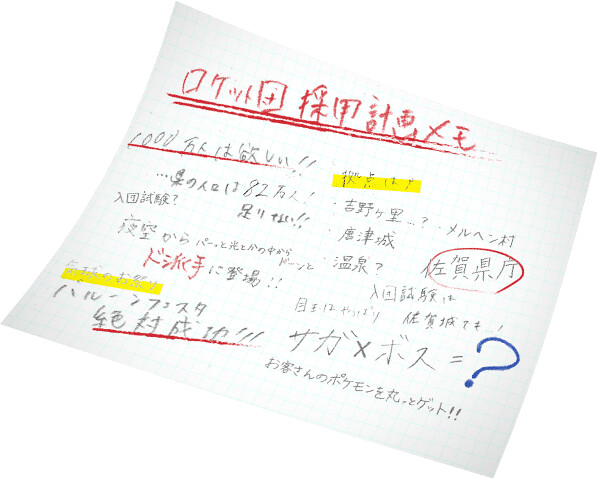 ロケット団 採用計画メモ
1000万人は欲しい!!
…県の人口は82万人!
足りない!!
入団試験?
夜空から パーッと光とかの中から
ドーンと
ド派手に登場!!
年越のお祭り
バルーンフェスタ
絶対成功!!!
拠点は?
・吉野ヶ里…?
・メルヘン村
・唐津城
・温泉?
佐賀県庁
入団試験は
佐賀城でも…!
目玉はやっぱり
サガ×ボス=?
お客さんのポケモンを丸っとゲット!!